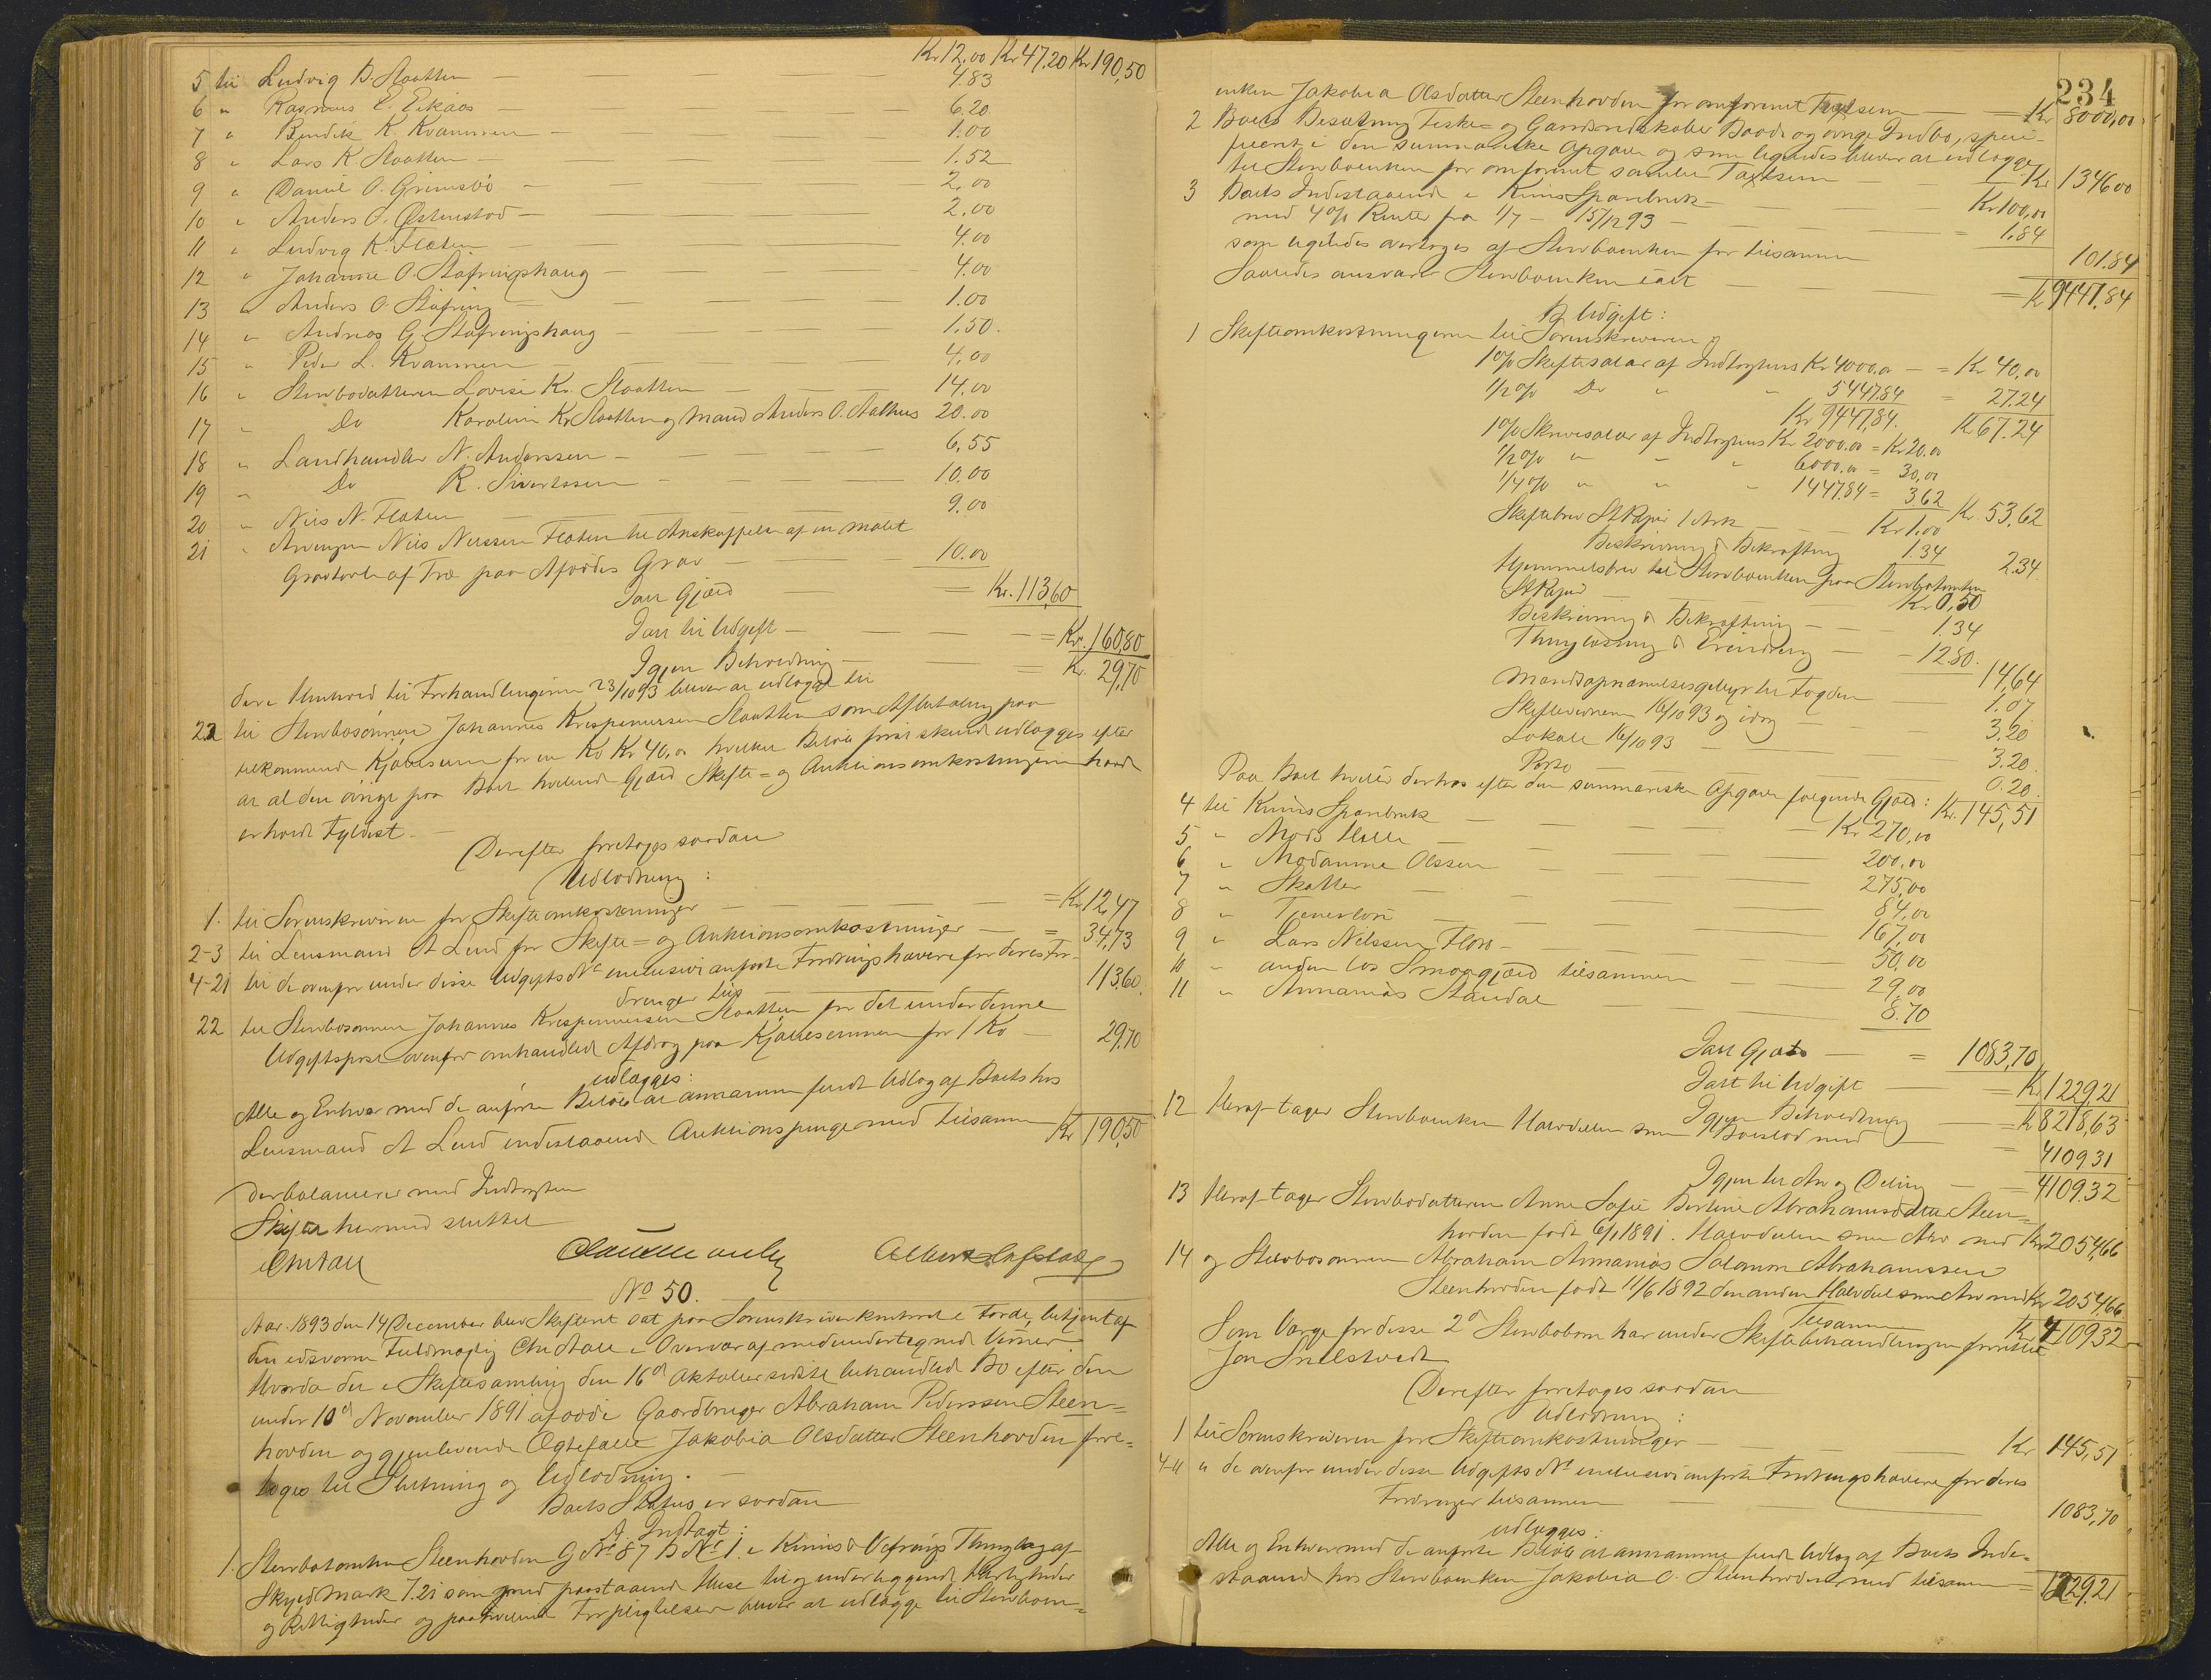 Kr 12.00 Kr 47.20 Kr 190,50
5 til Ludvig B. Slaatten — 4.83
6 " Rasmus E. Eikaas — 6.20
7 " Bendik K. Kvammen — 1.00
8 " Lars K. Slaatten — 1.52
9 " Daniel O. Grimsbö — 2.00
10 " Anders O. Østenstad — 2.00
11 " Ludvig K. Flaten — 4.00
12 " Johanne O. Stafringshaug — 4.00
13 " Anders O. Stafring — 1.00
14 " Andreas G. Stafringshaug — 1.50.
15 " Peder L. Kvammen — 4.00
16 " Stervbodatteren Lovise Kr. Slaatten — 14.00
17 " Do Karoline Kr. Slaatten og Mand Anders O. Aalhus 20.00
18 " Landhandler N. Anderssen — 6,55
19 " Do R. Sivertssen — 10.00
20 " Nils N. Flaten — 9.00
21 " Arvingen Nils Nilssen Flaten til Anskaffelse af en malet
Gravtavle af Træ paa Afdödes Grav — 10.00
Ialt Gjæld — = Kr. 113,60
Ialt til Udgift — = Kr. 160,80
Igjen Beholdning — = Kr. 29,70
der i Henhold til Forhandlingerne 23/10 93 bliver at udlægge til
22 til Stervbosönnen Johannes Krispenussen Slaatten som Afbetaling paa
tilkommende Kjöbesum for en Ko Kr 40,00 hvilket Belöb först skulde udlægges efter
at al den övrige paa Boet hvilende Gjæld Skifte- og Auktionsomkostningerne havde
erholdt Fyldest. —
Derefter foretoges saadan
Udlodning:
1. til Sorenskriveren for Skifteomkostninger — = Kr. 12,47
2-3 til Lensmand A Lund for Skifte- og Auktionsomkostninger — = 34,73
4-21 til de ovenfor under disse Udgifts No inclusive anförte Fordringshavere for deres For-
dringer tils. — 113,60.
22 til Stervbosönnen Johannes Krispenussen Slaatten for det under denne
Udgiftspost ovenfor omhandlede Afdrag paa Kjöbesummen for 1 Ko — 29,70
udlægges:
Alle og Enhver med de anförte Belöb at annamme fuldt Udlæg af Boets hos
Lensmand A Lund indestaaende Auktionspenge med tilsammen Kr 190,50
der balancerer med Indtægten
Skiftet hermed sluttet
No 50.
Aar 1893 den 14 December blev Skifteret sat paa Sorenskriverkontoret i Förde, betjent af
den edsvorne Fuldmægtig Chr Aall i Overvær af medundertegnede Vidner.
Hvorda det i Skiftesamling den 16de Oktober sidste behandlede Bo efter den
under 10de November 1891 afdöde Gaardbruger Abraham Pederssen Steen-
hovden og gjenlevende Ægtefælle Jakobia Olsdatter Steenhovden fore-
toges til Slutning og Udlodning. —
Boets Status er saadan
A Indtægt:
1. Stervbotomten Steenhovden G No 87 B No 1. i Kinns & Vefrings Thinglag af
Skyld Mark 7.21 som med paastaaende Huse til og underliggende Herligheder
og Rettigheder og paahvilende Forpligtelser bliver at udlægge til Stervboen-
234
enken Jakobia Olsdatter Steenhovden for omforenet Taxtsum — = Kr 8000,00
2 Boets Besætning Fiske- og Gaardsredskaber Baade og övrige Indbo, speci-
ficeret i den summariske Opgave og som ligeledes bliver at udlægge
til Stervboenken for omforenet samlet Taxtsum — Kr 1346.00
3 Boets Indestaaende i Kinns Sparebank — Kr 100,00
med 4 % Renter fra 1/7 - 15/12 93 — = 1.84
som ligeledes overtoges af Stervboenken for tilsammen — 101.84
Saaledes ansvarer Stervboenken ialt — = Kr 9447,84
B Udgift:
1 Skifteomkostningerne til Sorenskriveren
1 % Skiftesalær af Indtægtens Kr 4000.00 — = Kr 40,00
1/2 % Do " " 5447.84 = 27.24
Kr 9447,84. Kr 67.24
1 % Skrivesalær af Indtægtens Kr 2000.00 = Kr 20.00
1/2 % " " " 6000.00 = 30,00
1/4 % " " " 1447.84 = 3.62 Kr. 53,62
Skiftebrev St Papir 1 Ark — Kr 1.00
Beskrivning & Bekræftning 1.34 2.34
Hjemmelsbrev til Stervboenken paa Stervbotomten
St Papir — Kr 0,50
Beskrivning & Bekræftning — 1.34
Thinglæsning & Erindring — 12.80. 14,64
Mandsopnævnelsesgebyr til Fogden — 1.07
Skiftevidnerne 16/10 93 og idag — 3,20
Lokale 16/10 93 — 3.20.
Porto — 0.20.
Kr. 145,51
Paa Boet hviler derhos efter den summariske Opgave fölgende Gjæld:
4 til Kinns Sparebank — Kr 270,00
5 " Mads Hille — 200.00
6 " Madamme Olssen — 275,00
7 " Skatter — 84,00
8 " Tjenerlön — 167,00
9 " Lars Nilssen Florö — 50.00
10 " anden lös Smaagjæld tilsammen — 29,00
11 " Annanias Standal — 8.70
Ialt Gjæld — = 1083,70
Ialt til Udgift — = Kr 1229,21
Igjen Beholdning — = Kr 8218,63
12 Heraf tager Stervboenken Halvdelen som Boeslod med — = 4109.31
Igjen til Arv og Deling — = 4109.32
13 Heraf tager Stervbodatteren Anne Sofie Bertine Abrahamsdatter Steen-
hovden födt 6/1 1891. Halvdelen som Arv med Kr 2054,66
14 og Stervbosönnen Abraham Annanias Salamon Abrahamssen
Steenhovden födt 11/6 1892 den anden Halvdel som Arv med Kr 2054,66
Tilsammen Kr 4109,32
Som Værge for disse 2de Stervbobörn har under Skiftebehandlingen fungeret
Jon Snilstveit
Derefter foretoges saadan
Udlodning:
1 til Sorenskriveren for Skifteomkostninger — Kr 145,51
4-11 " de ovenfor under disse Udgifts No inclusive anförte Fordringshavere for deres
Fordringer tilsammen — 1083,70
udlægges:
Alle og Enhver med de anförte Belöb at annamme fuldt Udlæg af Boets Inde-
staaende hos Stervboenken Jakobia O. Steenhovden med tilsammen = 1229,21